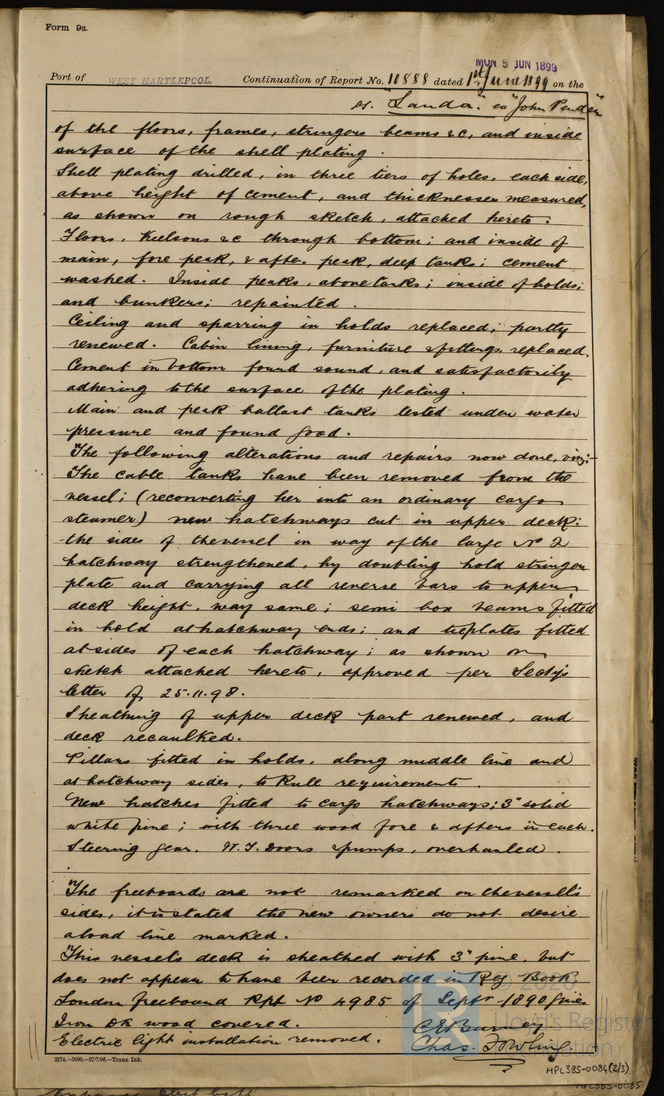 Form 9a.
MON 5 JUN 1899
Port of WEST HARTLEPOOL. Continuation of Report No. 10888 dated 1st June 1899 on the
ss. "Landa." ex "John Pender"
of the floors, frames, stringers beams &c, and inside
surface of the shell plating.
Shell plating drilled, in three tiers of holes, each side,
above height of cement, and thicknesses measured,
as shown on rough sketch, attached hereto:
Floors, Keelsons &c through bottom; and inside of
main, fore peak, & after peak, deep tanks; cement
washed. Inside peaks, above tanks; inside of holds;
and bunkers; repainted.
Ceiling and sparring in holds replaced; partly
renewed. Cabin lining, furniture & fittings replaced.
Cement in bottom found sound, and satisfactorily
adhering to the surface of the plating.
Main and peak ballast tanks tested under water
pressure and found good.
The following alterations and repairs now done, viz:-
The cable tanks have been removed from the
vessel; (reconverting her into an ordinary cargo
steamer) new hatchways cut in upper deck:
the sides of the vessel in way of the large No 2
hatchway strengthened, by doubling hold stringer
plate and carrying all reverse bars to upper
deck height, way same; semi box beams fitted
in hold at hatchway ends; and tieplates fitted
at sides of each hatchway; as shown on
sketch attached hereto, approved per Secty's
letter of 25.11.98.
Sheathing of upper deck part renewed, and
deck recaulked.
Pillars fitted in holds, along middle line and
at hatchway sides, to Rule requirements.
New hatches fitted to cargo hatchways; 3" solid
white pine; with three wood fore & afters in each.
Steering gear. W.T. Doors & pumps, overhauled.
The freeboards are not remarked on the vessel's
sides, it is stated the new owners do not desire
a load line marked.
This vessel's deck is sheathed with 3" pine, but
does not appear to have been recorded in Reg Book
London freeboard Rpt No 4985 of Septr 1890 gives
Iron DK wood covered.
Electric light installation removed.
Chas.
2274.—5000.—27/7/98.—Trans. Ink.
© 2020
Lloyd's Register
Foundation
HPL385-0084(2/3)
HPL385-0085